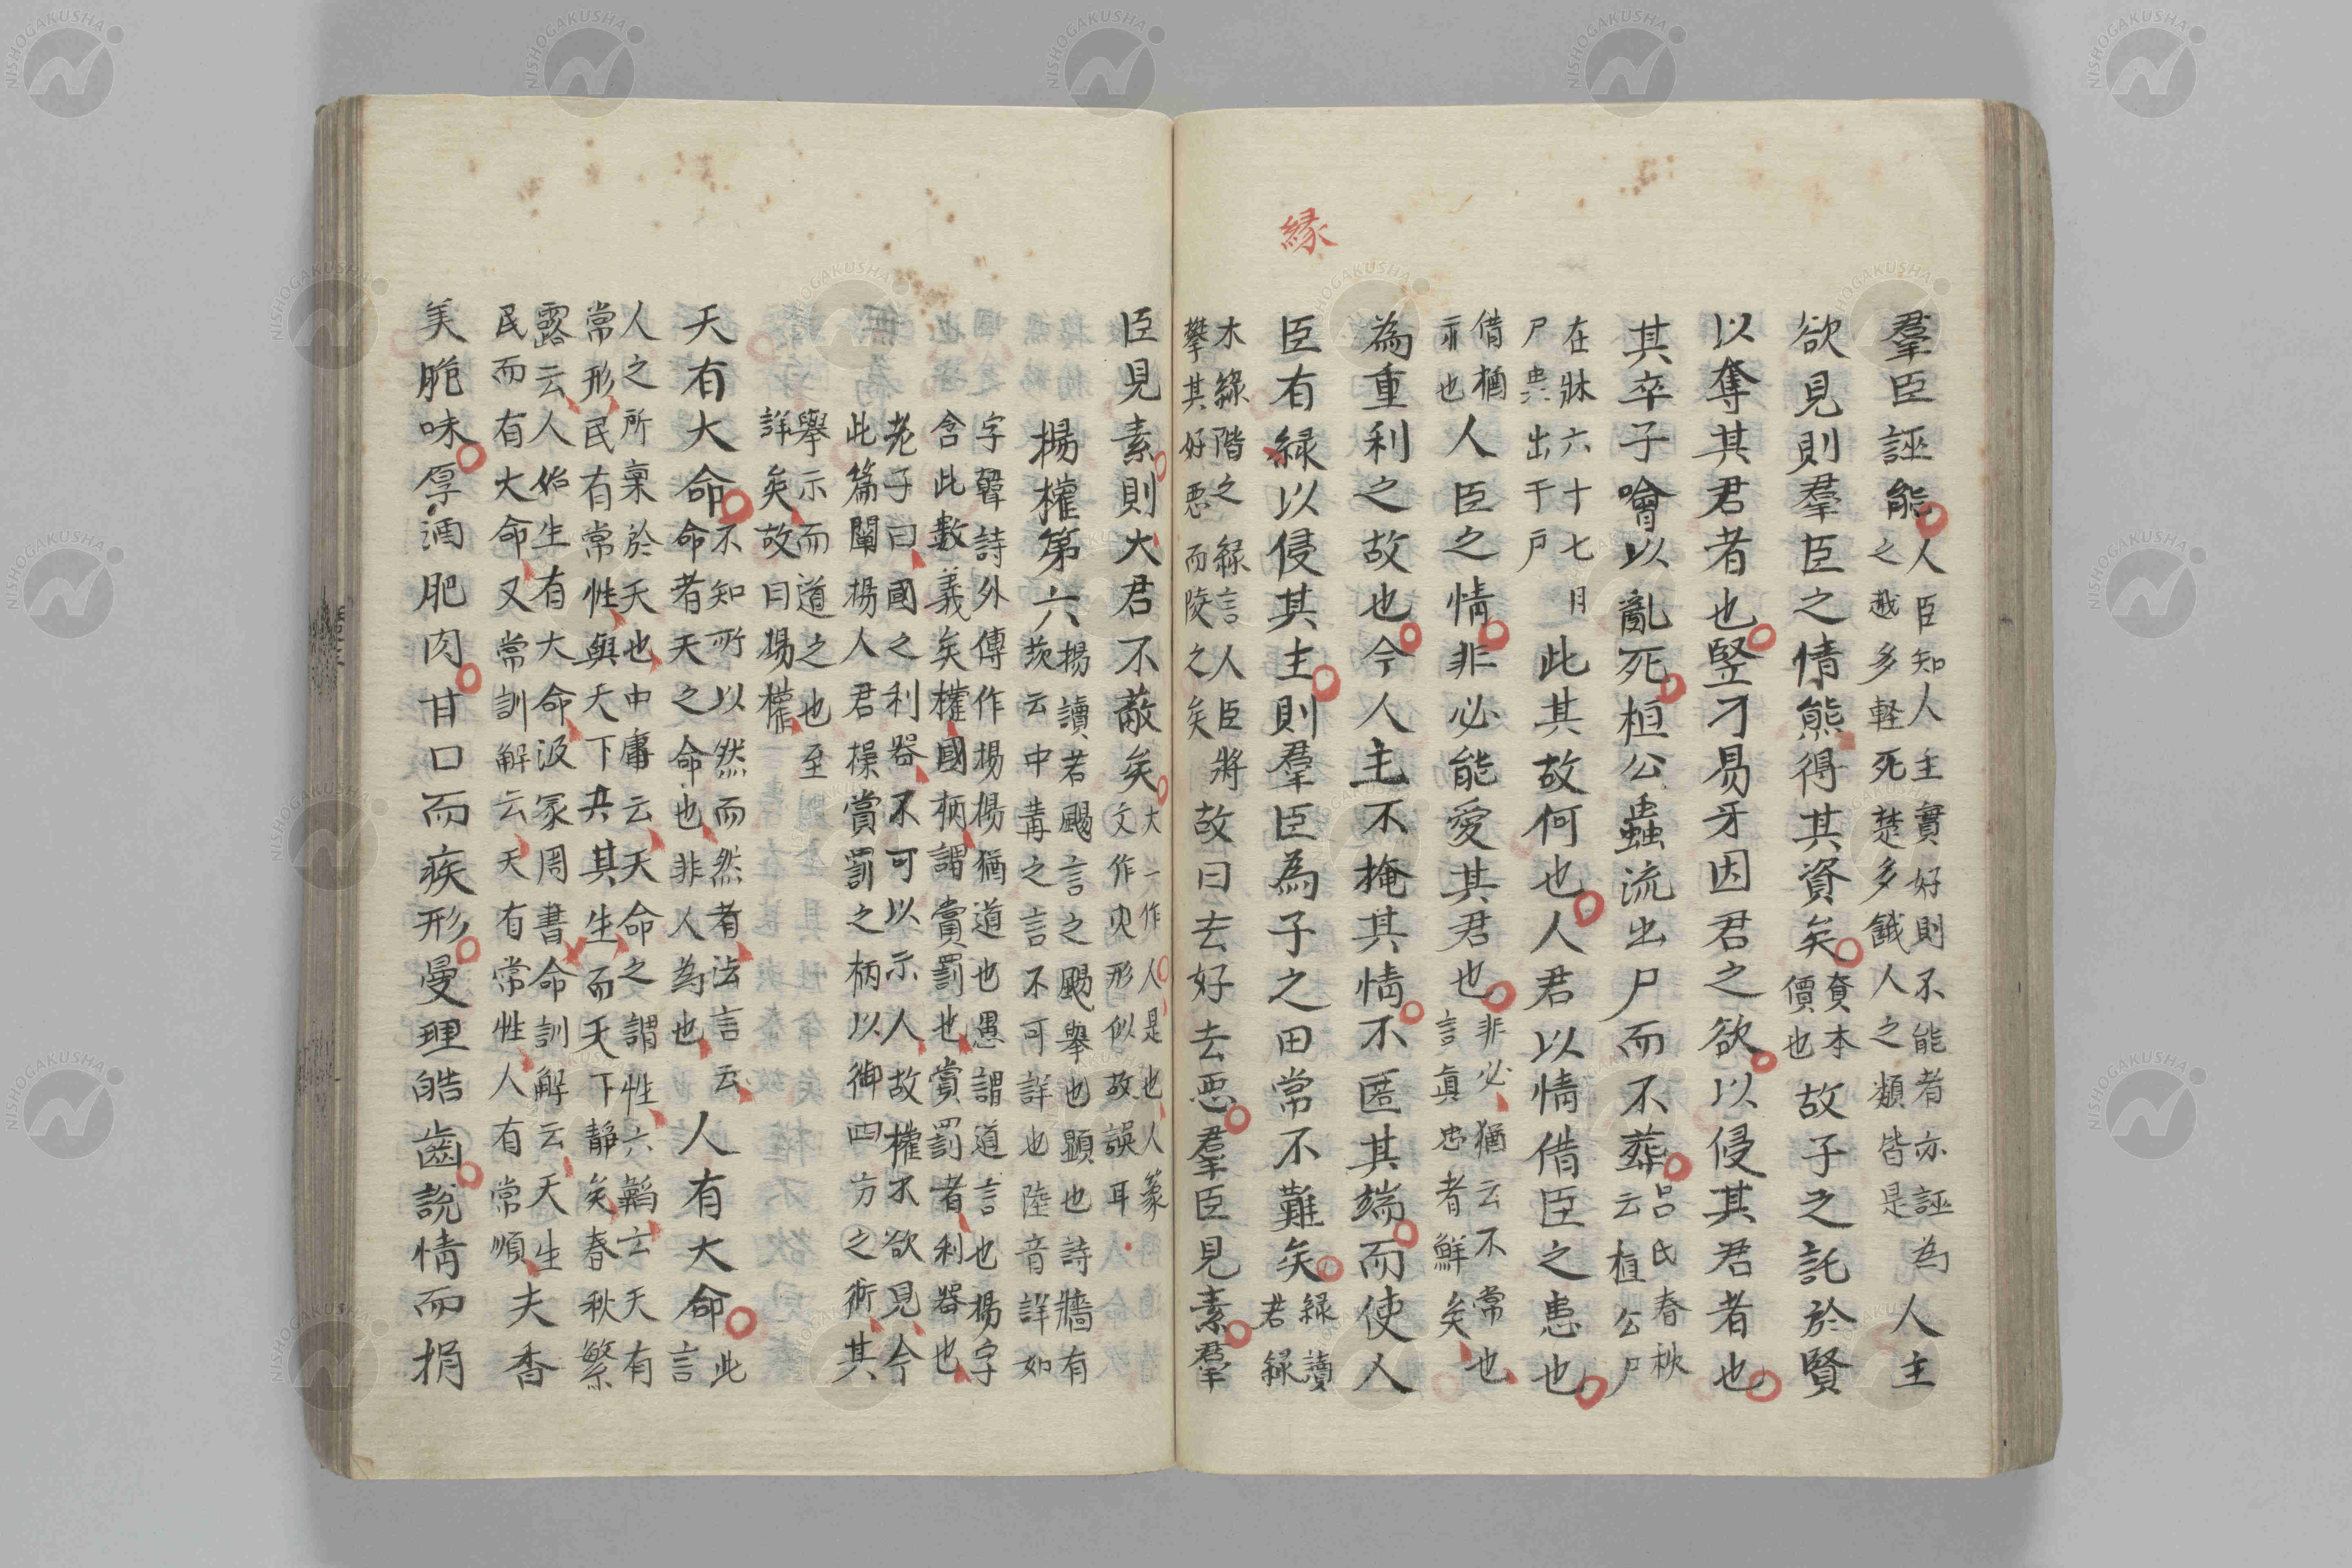 縁
羣臣誣能人臣知人主實好則不能者亦誣為人主
之越多軽死楚多餓人之類皆是
欲見則羣臣之情熊得其資矣資本
價也
故子之託於賢
以奪其君者也豎刁易牙因君之欲以侵其君者也
其卒子噲以亂死桓公蟲流出尸而不葬呂氏春秋
云桓公尸
在牀六十七日
尸虫出于戸
此其故何也人君以情借臣之患也
借猶
示也
人臣之情非必能愛其君也非必猶云不常也
言真忠者鮮矣
為重利之故也今人主不掩其情不匿其端而使人
臣有緑以侵其主則羣臣為子之田常不難矣緑讀
君緑
木緑階之緑言人臣將
攀其好悪而陵之矣
故曰去好去悪羣臣見素羣
臣見素則大君不蔽矣大一作人是也人篆
文作灾形似故誤耳
楊權第六楊讀若颺言之颺舉也顕也詩牆有
茨云中冓之言不可詳也陸音詳如
字韓詩外傳作揚揚猶道也愚謂道言也揚字
含此數義矣權國柄謂賞罰也賞罰者利器也
老子曰國之利器不可以示人故權不欲見今
此篇闡揚人君操賞罰之柄以御四方之術其
舉示而道之也至
詳矣故曰揚權
天有大命不知所以然而然者法言云
命者天之命也非人為也
人有大命此
言
人之所稟於天也中庸云天命之謂性六韜云天有
常形民有常性與天下共其生而天下静矣春秋繁
露云人始生有大命汲冢周書命訓解云天生
民而有大命又常訓解云天有常性人有常順
夫香
美脆味厚酒肥肉甘口而疾形曼理皓齒說情而捐